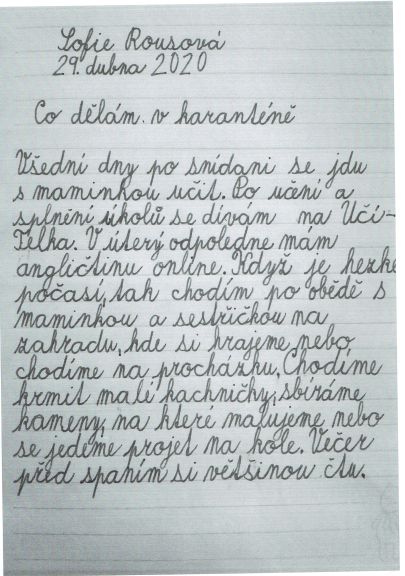 Sofie Rousová
29. dubna 2020
Co dělám v karanténě
Všední dny po snídani se jdu
s maminkou učit. Po učení a
splnění úkolů se dívám na Učí-
Telka. V úterý odpoledne mám
angličtinu online. Když je hezké
počasí, tak chodím po obědě s
maminkou a sestřičkou na
zahradu, kde si hrajeme nebo
chodíme na procházku. Chodíme
krmit malé kachničky, sbíráme
kameny, na které malujeme nebo
se jedeme projet na kole. Večer
před spaním si většinou čtu.